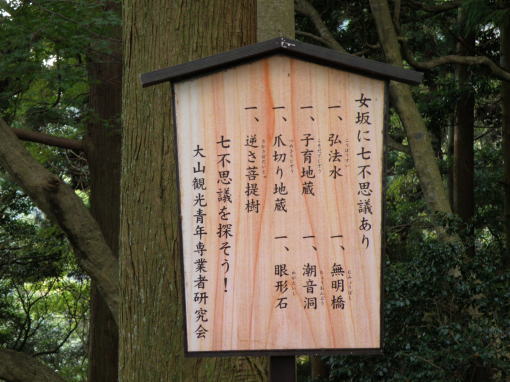 女坂に七不思議あり
一、弘法水　一、無明橋
一、子育地蔵　一、潮音洞
一、爪切り地蔵　一、眼形石
一、逆さ菩提樹
七不思議を探そう！
大山観光青年専業者研究会